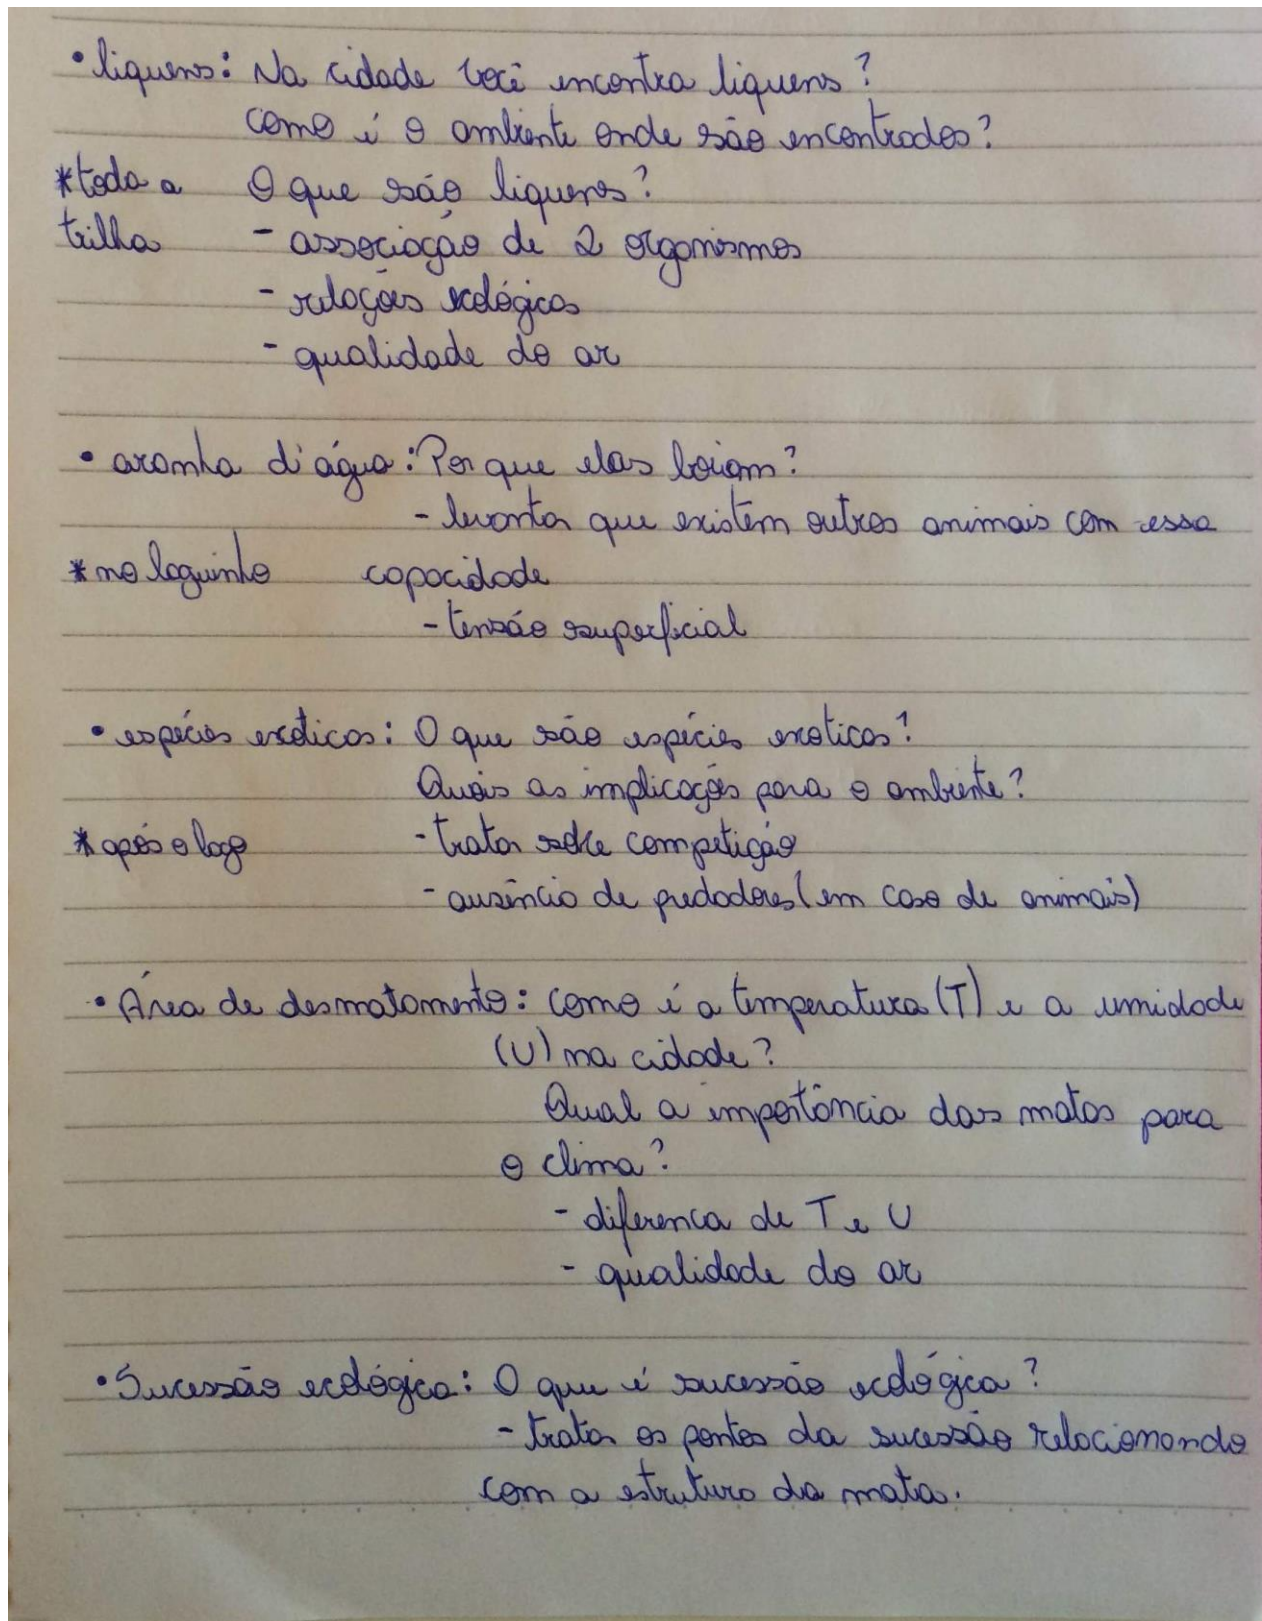 • liquens: Na cidade você encontra liquens?
Como é o ambiente onde são encontrados?
*toda a O que são liquens?
trilha - associação de 2 organismos
- relações ecológicas
- qualidade do ar
• aranha d'água: Por que elas boiam?
- levantar que existem outros animais com essa
* no laguinho capacidade
- tensão superficial
• espécies exóticas: O que são espécies exoticas?
Quais as implicações para o ambiente?
* após o lago - tratar sobre competição
- ausência de predadores (em caso de animais)
• Área de desmatamento: como é a temperatura (T) e a umidade
(U) na cidade?
Qual a importância das matas para
o clima?
- diferenca de T e U
- qualidade do ar
• Sucessão ecológica: O que é sucessão ecológica?
- tratar os pontos da sucessão relacionando
com a estrutura da mata.